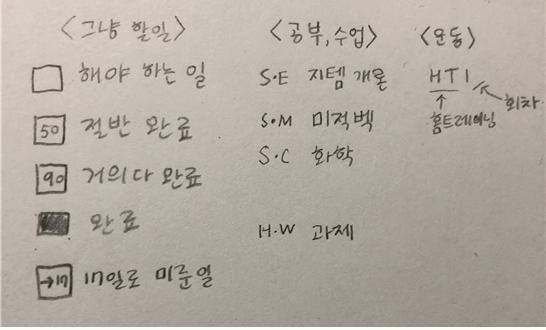 <그냥 할일>
해야 하는 일
50 절반 완료
90 거의다 완료
완료
→17 17일로 미룬일
<공부,수업>
S·E 지템개론
S·M 미적벡
S·C 화학
H·W 과제
<운동>
HT1
회차
홈트레이닝